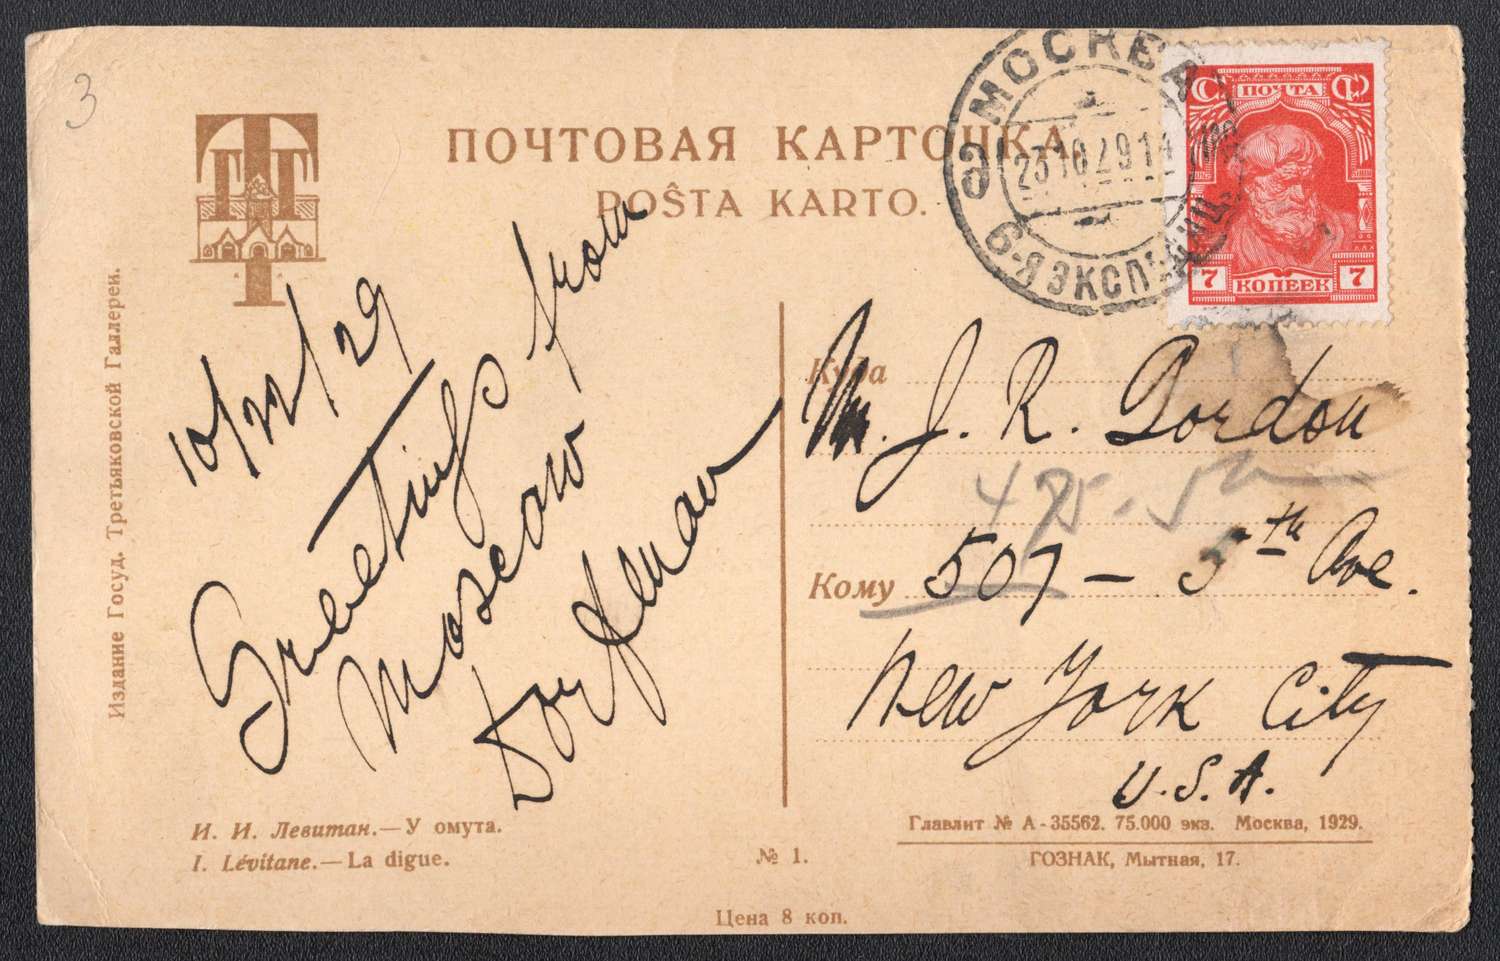 3
ПОЧТОВАЯ КАРТОЧКА
POŜTA KARTO.
МОСКВА
23 10 29 14
6-Я ЭКСПЕДИЦ.
ПОЧТА
7 КОПЕЕК 7
Издание Госуд. Третьяковской Галлереи.
10/22/29
Greetings from
Moscow
Dorfman
Куда
Mr. J. R. Gordon
475-5th
Кому
507 – 5th Ave.
New York City
U.S.A.
И. И. Левитан.—У омута.
I. Lévitane.—La digue.
№ 1.
Главлит № А-35562. 75.000 экз. Москва, 1929.
ГОЗНАК, Мытная, 17.
Цена 8 коп.